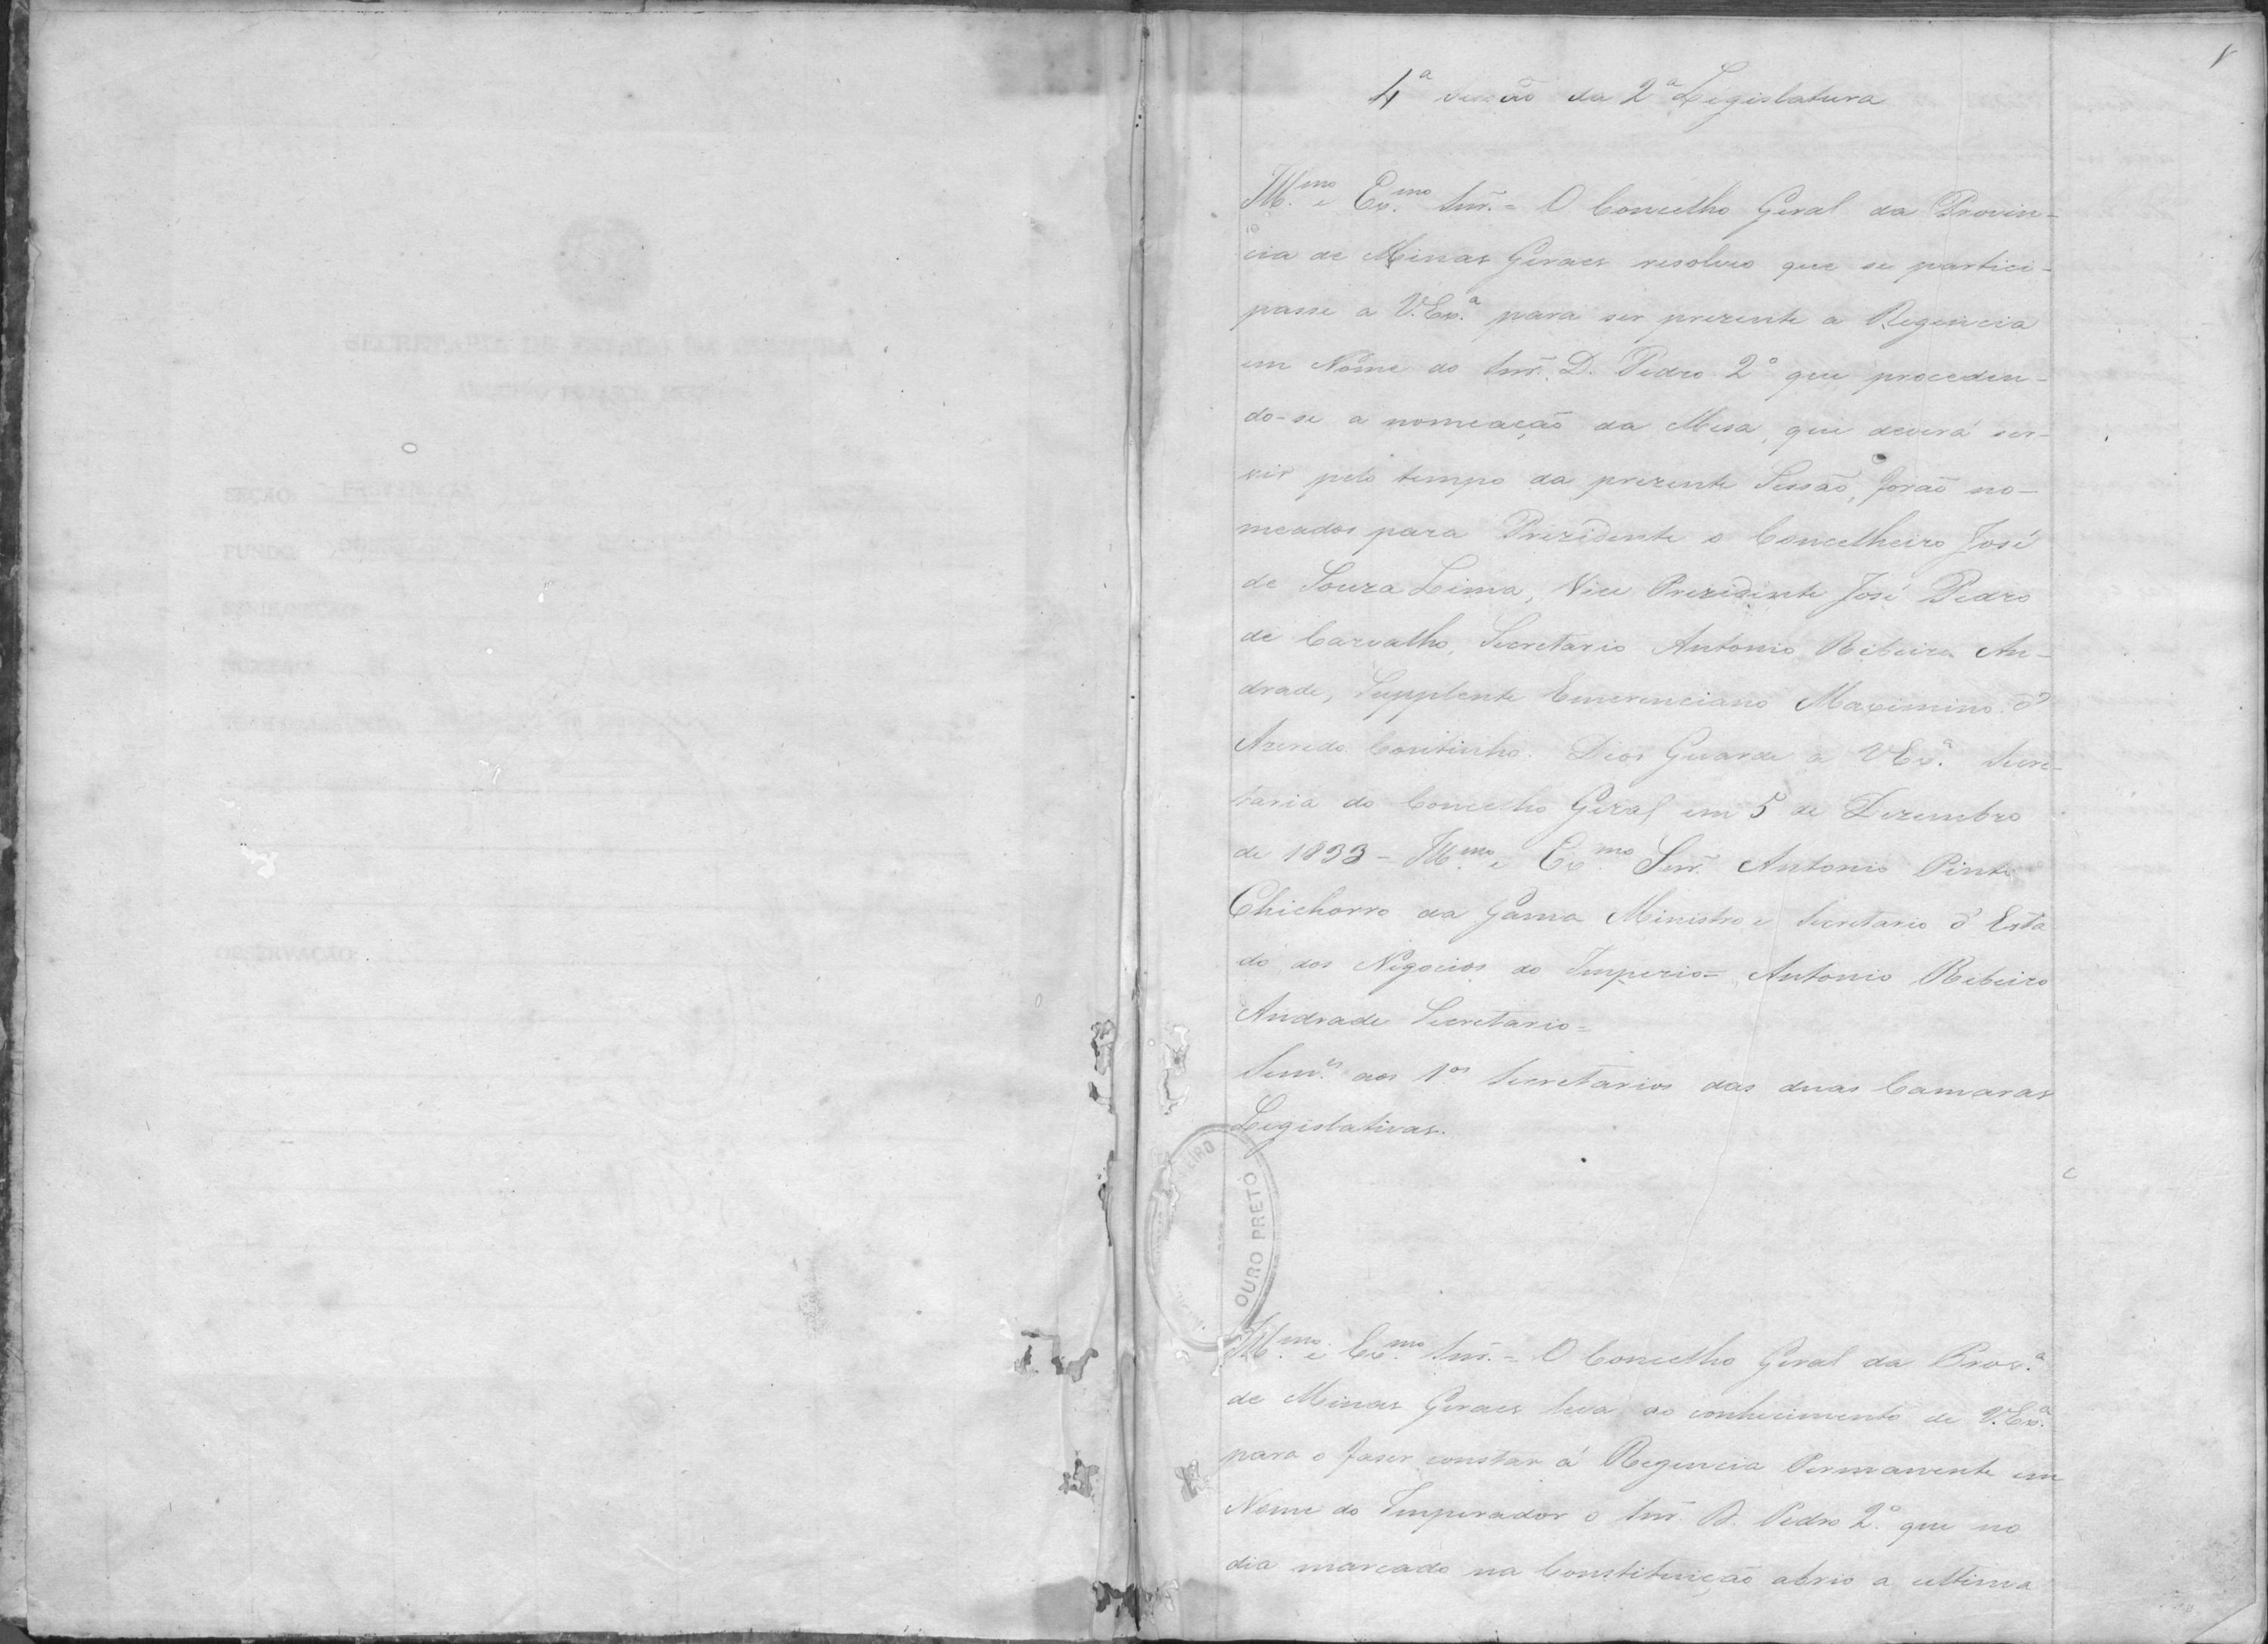 1
4ª Sessão da 2ª Legislatura
Ill.mo e Ex.mo Snr. = O Concelho Geral da Provin-
cia de Minas Geraes resolveo que se partici-
passe a V.Ex.ª para ser prezente a Regencia
em Nome do Snr. D. Pedro 2º que proceden-
do-se a nomeação da Mesa, que deverá ser-
vir pelo tempo da prezente Sessão, forão no-
meados para Prezidente o Concelheiro José
de Souza Lima, Vice Prezidente José Pedro
de Carvalho, Secretario Antonio Ribeiro An-
drade, Supplente Emerenciano Maximino d'
Azeredo Coutinho. Deos Guarde a VEx.ª Secre-
taria do Concelho Geral em 5 de Dezembro
de 1833 - Ill.mo e Ex.mo Snr. Antonio Pinto
Chichorro da Gama Ministro e Secretario d'Esta
do dos Negocios do Imperio = Antonio Ribeiro
Andrade Secretario =
aos 1os Secretarios das duas Camaras
Legislativas.
OURO PRETO
Ill.mo e Ex.mo Snr. = O Concelho Geral da Prov.ª
de Minas Geraes leva ao conhecimento de V.Ex.ª
para o faser constar á Regencia Permanente em
Nome do Imperador o Snr. D. Pedro 2.º que no
dia marcado na Constituição abrio a ultima
SECRETARIA DE ESTADO DA CULTURA
SEÇÃO:
FUNDO:
OBSERVAÇÃO: